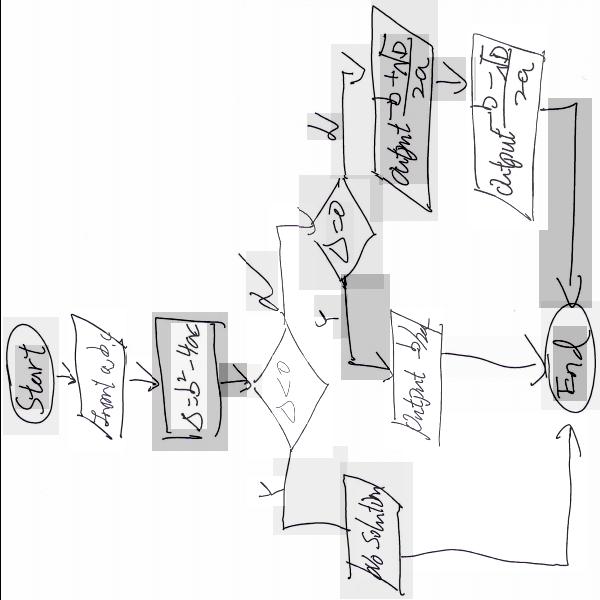 Start
Input a,b,c
Δ=b²-4ac
Δ<0
N
Y
Δ=0
N
Y
No Solution
Output -b/2a
Output -b+√D/2a
Output -b-√D/2a
End